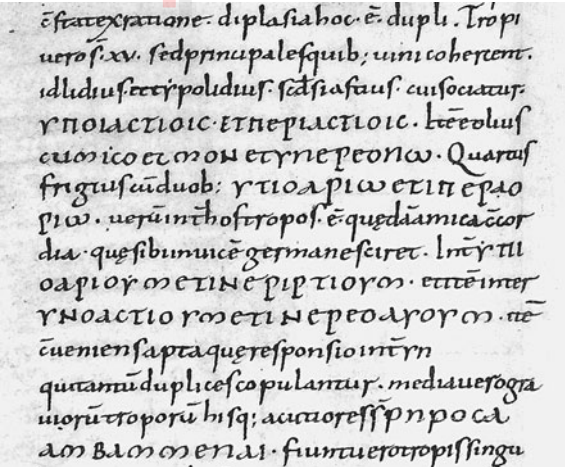 c̄stat ex ratione. diplasia hoc. ē. dupli. Tropi
uero s̄. xv. sed principales quib; uini coherent.
id lidius et ypolidius. scd̄s iastius. cui sociatur.
ΥΠΟΙΑCΤΙΟΙC. ΕΤΠΕΡΙΑCΤΙΟΙC. Itē eolius
CUMICOETMON ETYΠEPEONω. Quartus
frigius cū duob; ΥΤΙΟΑΡΙω ΕΤΙΠΕΡΑΟ
ΡΙω. uerū int̄ hos tropos. ē. quędā amica c̄cor
dia. quę sibi inuicē germanesciret. Int̄ ΥΤΙΙ
ΟΑΡΙΟΥΜΕΤΙΝΕΡΙΡΤΙΟΥΜ. et itē inter
ΥΝΟΑCΤΙΟΥΜΕΤΙΝΕΡΕΟΑΥΟΥΜ. itē
c̄ueniens apta que responsio int̄ ΥΠ
qui tantū duplices copulantur. media uero gra
uiorū troporū hisq; acutiores s̄ ΡΠΡΟCΛ
ΑΜΒΑΜΜΕΝΑΙ. fiunt uero tropis singu